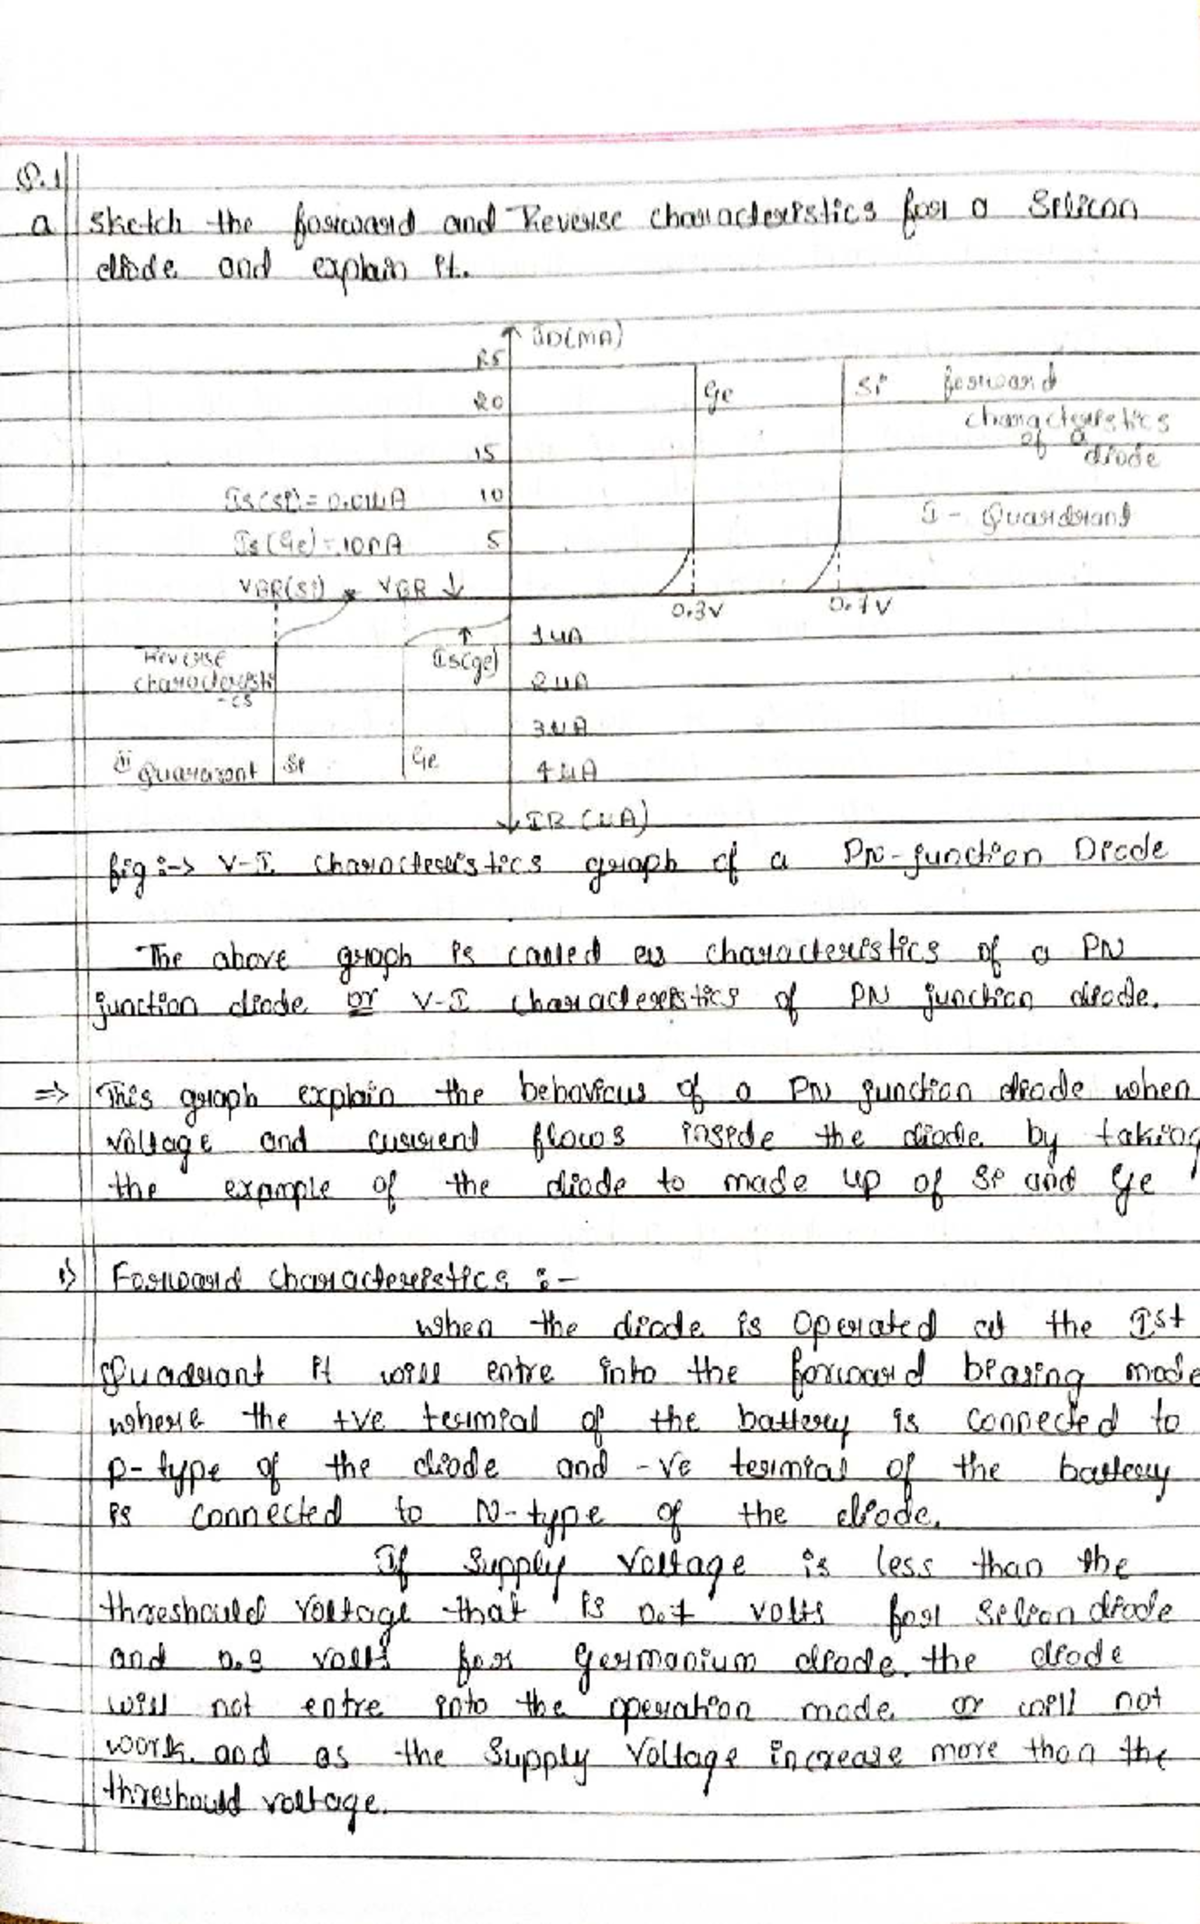 Q.1
a Sketch the forward and Reverse characteristics for a Selicon
diode and explain it.
ID(MA)
25
20
15
10
5
Ge
Si forward
characteristics
of a
diode
I - Quardrant
Is(Si) = 0.01uA
Is(Ge) = 10nA
VBR(Si) VBR ↓
0.3V
0.7V
Reverse
characteristi
-cs
↑
Is(ge)
1uA
2uA
3uA
4uA
II Quardrant
Si
Ge
IR (uA)
fig :-> V-I characteristics graph of a PN-junction Diode
The above graph is called as characteristics of a PN
junction diode or V-I characteristics of PN junction diode.
=> This graph explain the behavious of a PN junction diode when
voltage and current flows inside the diode by taking
the example of the diode to made up of Si and Ge
1) Forward characteristics :-
when the diode is operated at the Ist
Quadrant it will entre into the forward biasing mode
where the +ve termial of the battery is connected to
p-type of the diode and -ve termial of the battery
is connected to N-type of the diode.
If supply voltage is less than the
threshould voltage that is 0.7 volts for Selicon diode
and 0.3 volts for germanium diode. the diode
will not entre into the operation made or will not
work. and as the supply voltage increase more than the
threshould voltage.